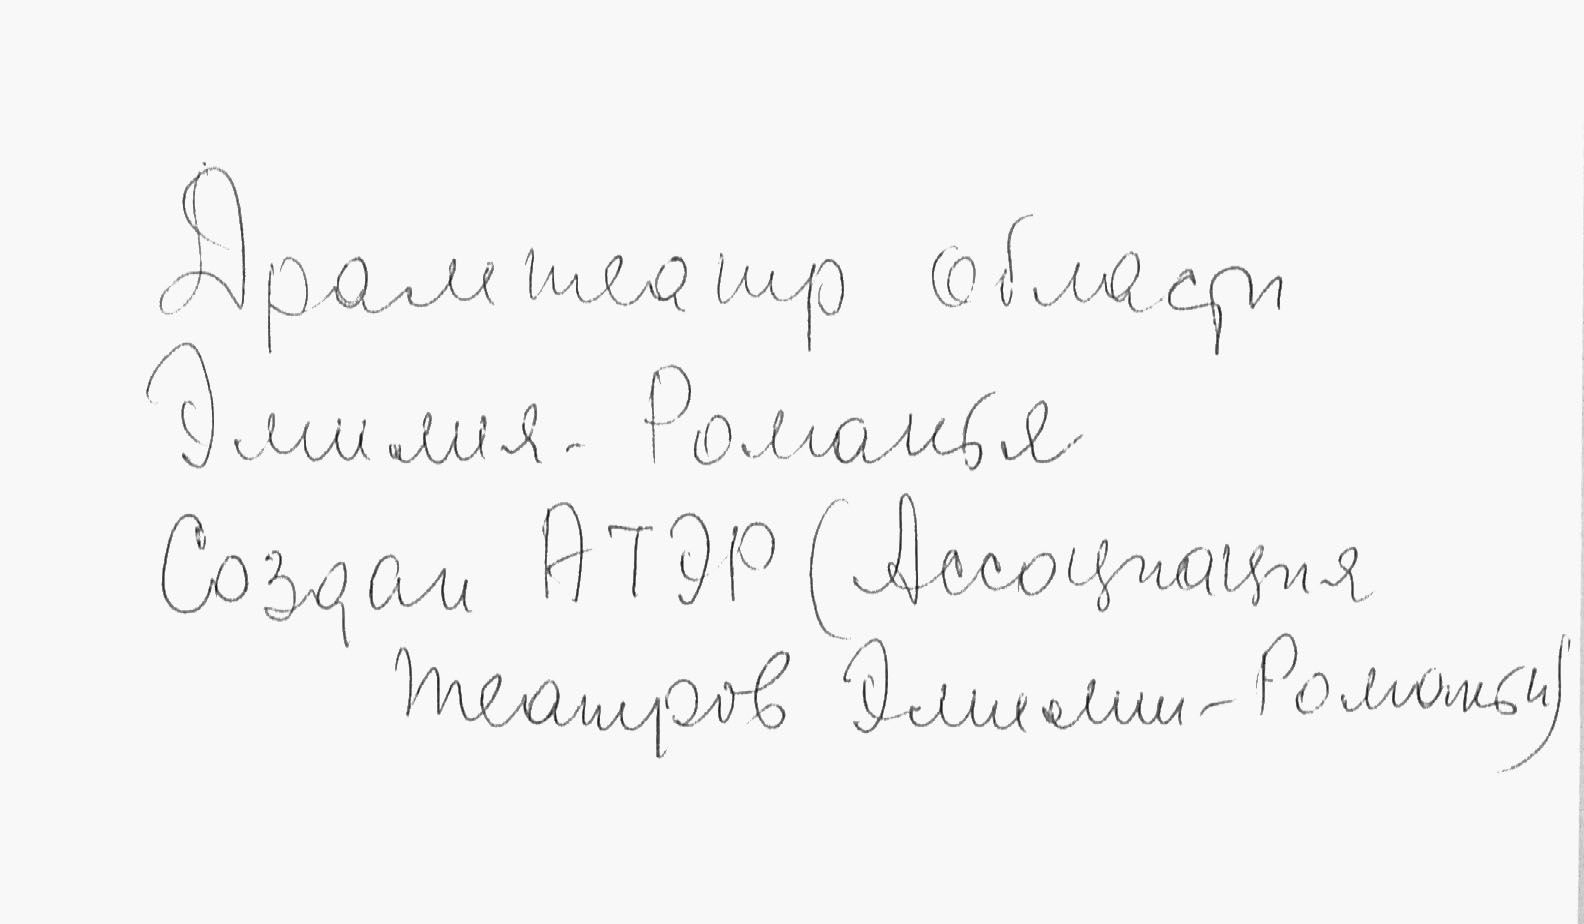 Драмтеатр области
Эмилия-Романья
Создан АТЭР (Ассоциация
театров Эмилии-Романьи)